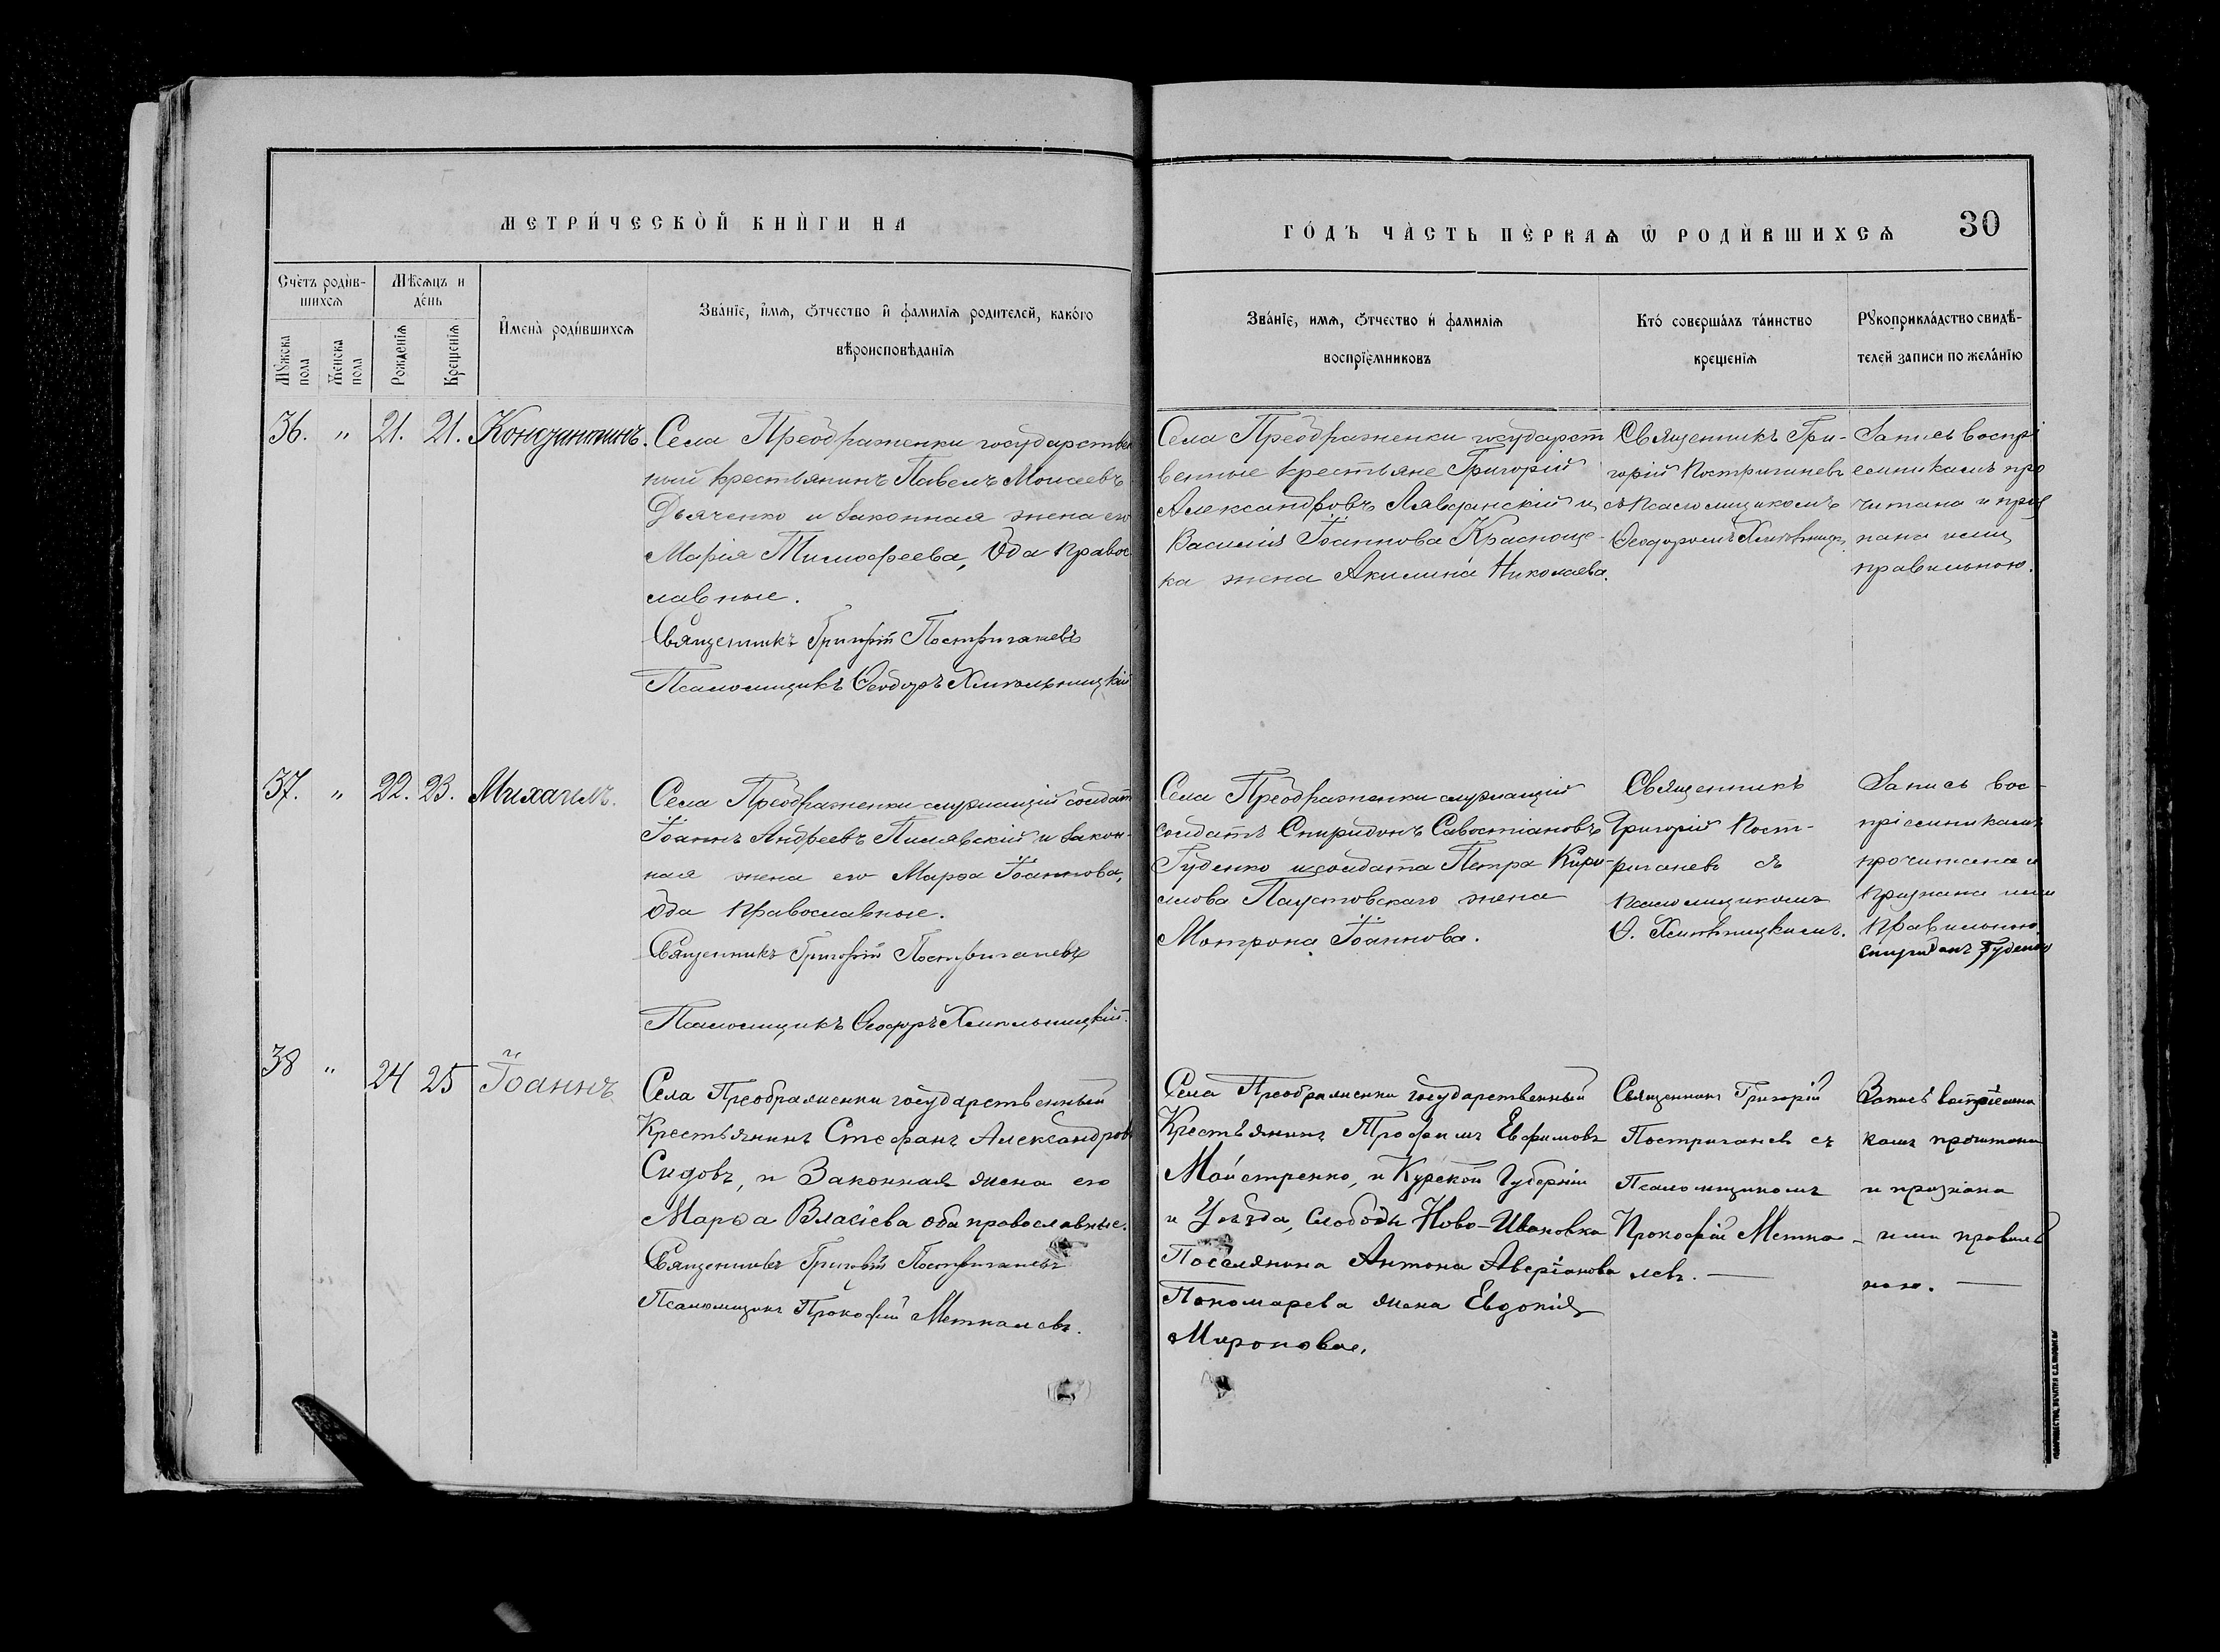 МЕТРИ́ЧЕСКОЙ КНИ́ГИ НА
ГО́ДЪ ЧА́СТЬ ПЕ́РВАѦ Ѡ РОДИ́ВШИХСѦ 30
Сче́тъ роди́в-
шихсѧ
Мѣ́сѧцъ и
де́нь
Мꙋ́жеска
пола
Же́нска
пола
Рожде́нїѧ
Креще́нїѧ
Имена̀ роди́вшихсѧ
Зва́нїе, и́мѧ, ѻ́тчество и фамилїѧ родителей, како́го
вѣроисповѣданїѧ
Зва́нїе, имѧ, ѻ́тчество и́ фамилїѧ
воспрїе́мниковъ
Кто́ соверша́лъ та́инство
креще́нїѧ
Рꙋкоприкла́дство свидѣ́-
телей записи по жела́нїю
36. " 21. 21. Константинъ.
Села Преображенки государствен
ный крестьянинъ Павелъ Моисеевъ
Дьяченко и законная жена его
Марія Тимофеева, Оба право
славные.
Священникъ Григорій Постригачевъ
Псаломщикъ Ѳеодоръ Хмельницкій
Села Преображенки государст
венные крестьяне Григорій
Александровъ и
Василія Іоаннова Краснощо-
ка жена Акилина Николаева.
Священникъ Гри-
горій Постригачевъ
съ Псаломщикомъ
Ѳеодоромъ
Запись воспрі
емникамъ про
читана и приз
нана ими
правильною.
37. " 22. 23. Михаилъ.
Села Преображенки служащій солдатъ
Іоаннъ Андреевъ Пилявскій и закон-
ная жена его Марѳа Іоаннова,
Оба православные.
Священникъ Григорій Постригачевъ
Псаломщикъ Ѳеодоръ Хмельницкій.
Села Преображенки служащій
солдатъ Спиридонъ Савостіановъ
Гуденко и солдата Петра Кири-
лова Паустовскаго жена
Мотрона Іоаннова.
Священникъ
Григорій Пост-
ригачевъ съ
псаломщикомъ
Ѳ. Хмельницкимъ.
Запись вос-
пріемникамъ
прочитана и
признана ими
правильною.
Спиридонъ Гуденко
38 " 24 25 Іоаннъ
Села Преображенки государственный
Крестьянинъ Стефанъ Александровъ
Сидовъ, и Законная жена его
Марѳа Власіева оба православные.
Священникъ Григорій Постригачевъ
Псаломщикъ Прокофій Меткалевъ.
Села Преображенки государственный
Крестьянинъ Трофимъ Евфимовъ
Майстренко, и Курской Губерніи
и Уѣзда, Слободы Ново-Ивановка
Поселянина Антона Аверіанова
Пономарева жена Евдокія
Миронова.
Священникъ Григорій
Постригачевъ съ
Псаломщикомъ
Прокофій Метка-
левъ.
Запись воспріемни
камъ прочитана
и признана
ими правиль
ною.